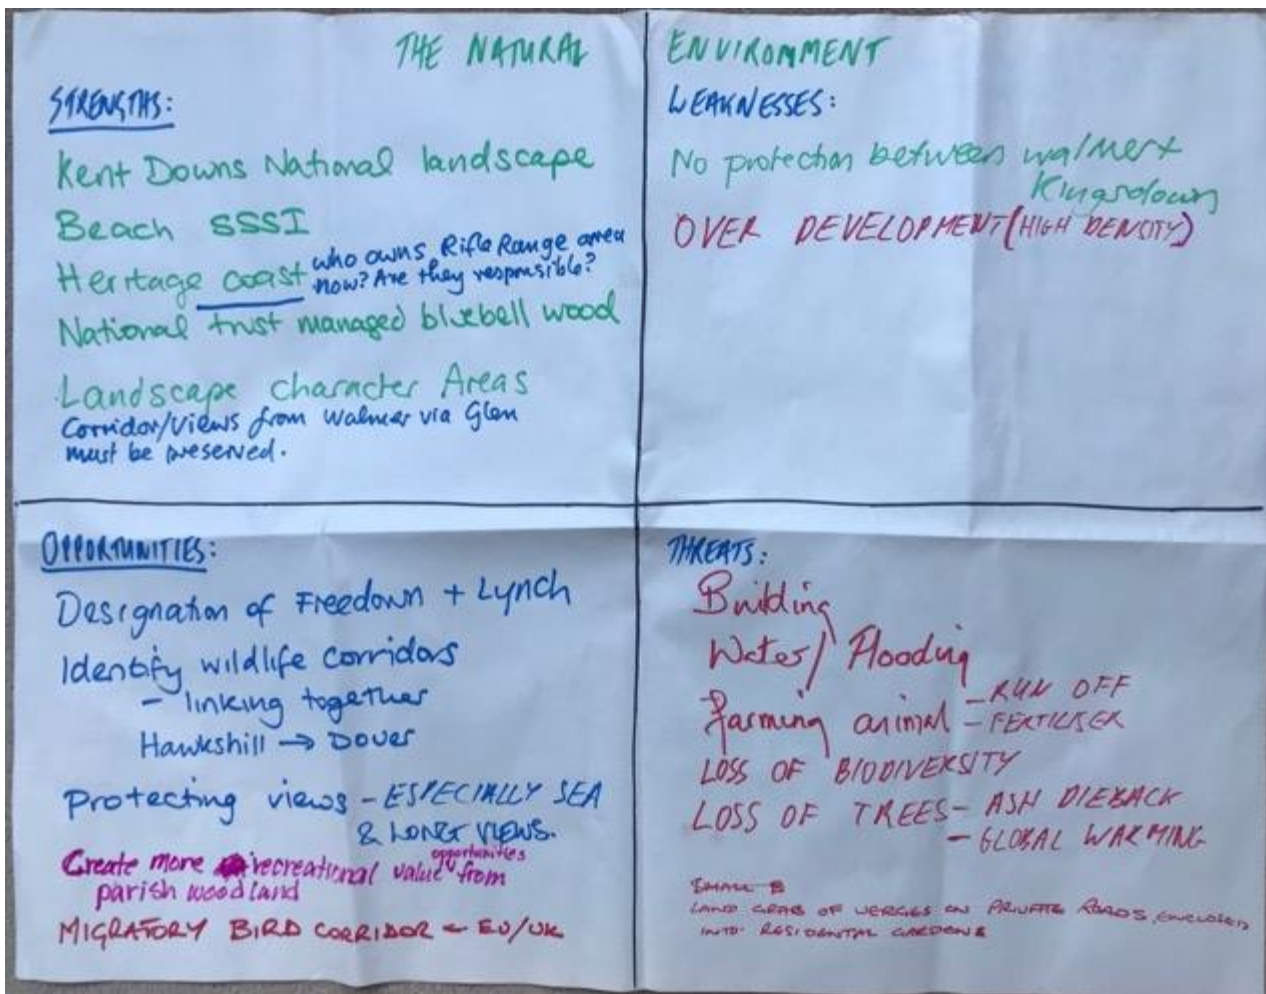 THE NATURAL ENVIRONMENT
STRENGTHS:
Kent Downs National landscape
Beach SSSI
Heritage coast
who owns Rifle Range area
now? Are they responsible?
National trust managed bluebell wood
Landscape character Areas
Corridor/Views from Walmer via Glen
must be preserved.
WEAKNESSES:
No protection between walmer +
Kingsdown
OVER DEVELOPMENT (HIGH DENSITY)
OPPORTUNITIES:
Designation of Freedown + Lynch
Identify wildlife corridors
- linking together
Hawkshill → Dover
Protecting views - ESPECIALLY SEA
& LONG VIEWS.
Create more recreational value opportunities from
parish woodland
MIGRATORY BIRD CORRIDOR - EU/UK
THREATS:
Building
Water/ Flooding
farming animal - RUN OFF
- FERTILISER
LOSS OF BIODIVERSITY
LOSS OF TREES - ASH DIEBACK
- GLOBAL WARMING
SMALL B
LAND GRAB OF VERGES ON PRIVATE ROADS, ENCLOSED
INTO RESIDENTAL GARDENS